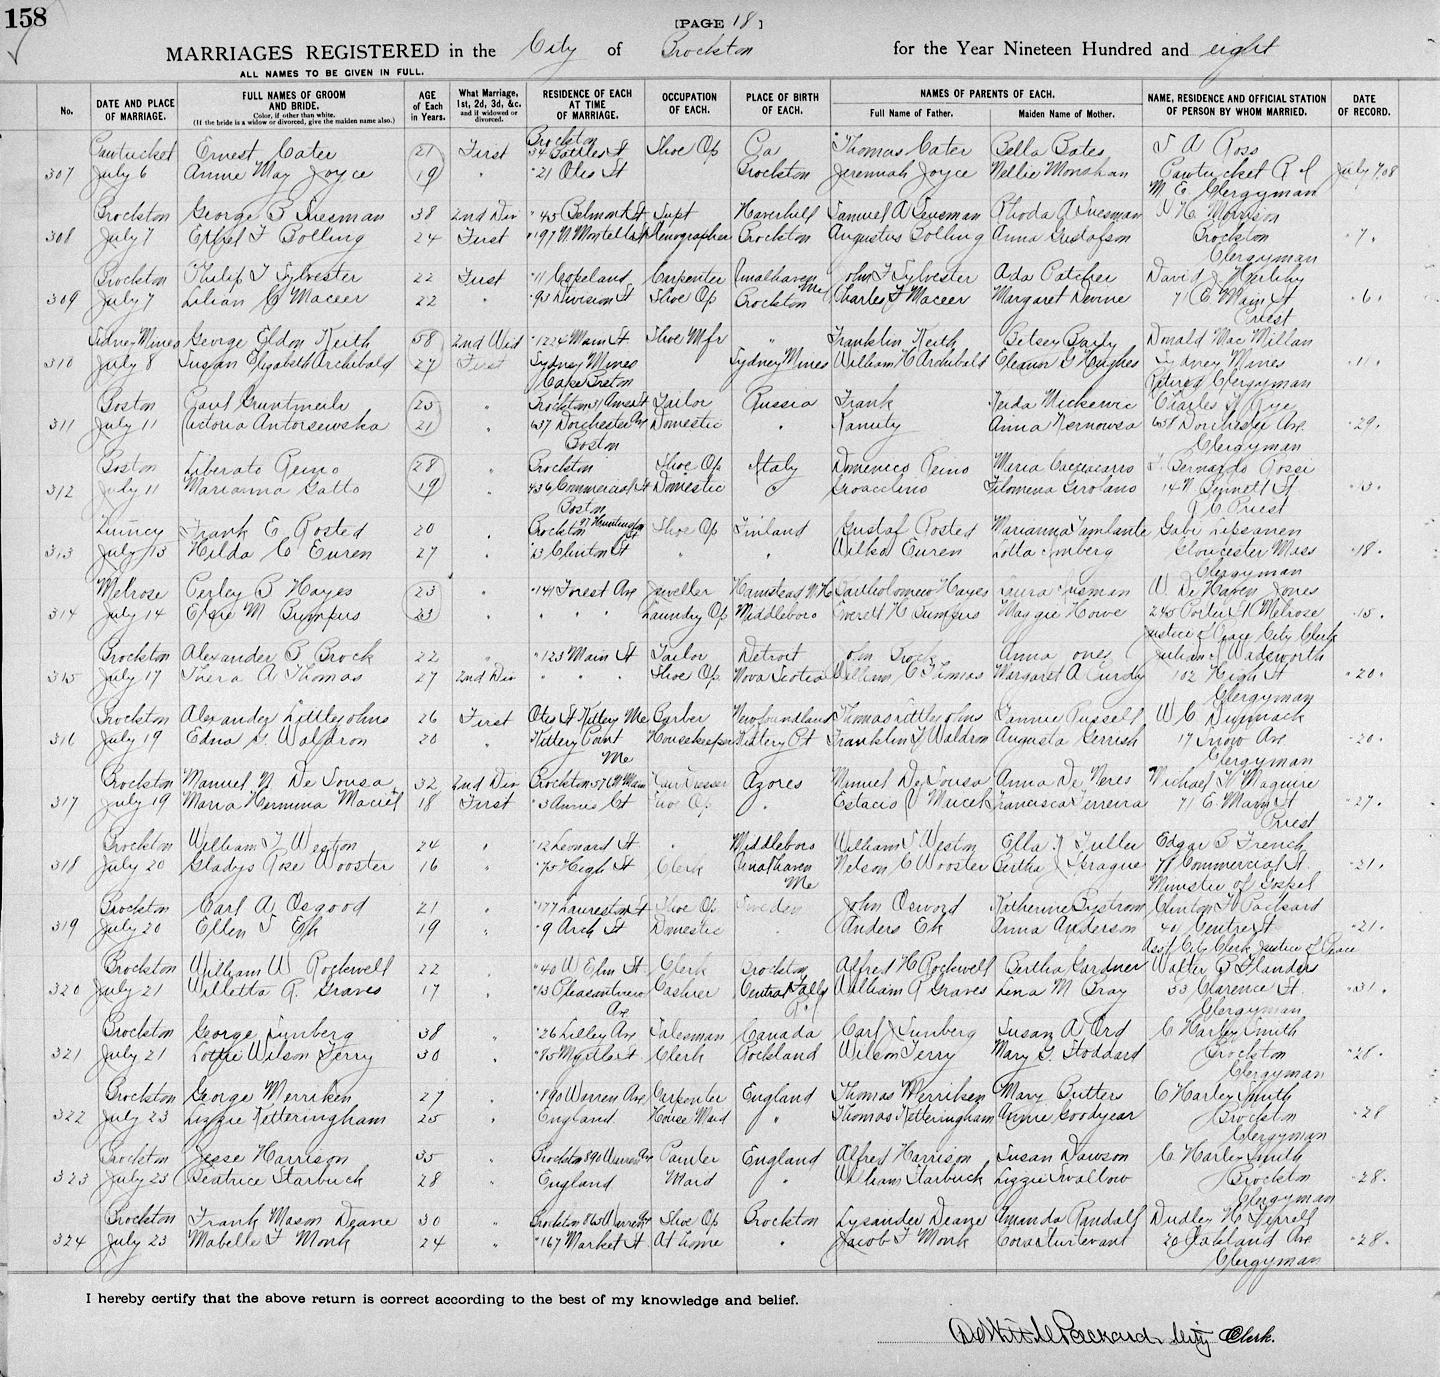 158
[PAGE 18]
MARRIAGES REGISTERED in the City of Brockton for the Year Nineteen Hundred and eight
ALL NAMES TO BE GIVEN IN FULL.
No. DATE AND PLACE OF MARRIAGE. FULL NAMES OF GROOM AND BRIDE. Color, if other than white. (If the bride is a widow or divorced, give the maiden name also.) AGE of Each in Years. What Marriage, 1st, 2d, 3d, &c. and if widowed or divorced. RESIDENCE OF EACH AT TIME OF MARRIAGE. OCCUPATION OF EACH. PLACE OF BIRTH OF EACH. NAMES OF PARENTS OF EACH. Full Name of Father. Maiden Name of Mother. NAME, RESIDENCE AND OFFICIAL STATION OF PERSON BY WHOM MARRIED. DATE OF RECORD.
Brockton
Pawtucket Ernest Cater 21 First 34 St Shoe Op Ga Thomas Cater Bella Bates S A Ross
307 July 6 Annie May Joyce 19 " " 21 Otis St Brockton Jeremiah Joyce Nellie Monahan Pawtucket R I July 7, 08
M. E. Clergyman
Brockton George B 38 2nd Div " 45 Belmont St Supt Haverhill Samuel A Rhoda A Morrison
308 July 7 Ethel F Bolling 24 First " 197 N Montello St Stenographer Brockton Augustus Bolling Anna Gustafson Brockton " 7 "
Clergyman
Brockton Philip T Sylvester 22 First " 11 Copeland Carpenter Vinalhaven John F Sylvester Ada Patcher David J
309 July 7 Lilian G Maceer 22 " " 93 Division St Shoe Op Me Brockton Charles F Maceer Margaret Devine 71 E Main St " 6 "
Priest
Sidney Mines George Eldon Keith 58 2nd Wid " 1224 Main St Shoe Mfr " Franklin Keith Betsey Donald Mac Millan
310 July 8 Susan Elizabeth Archibald 27 First Sydney Mines Sydney Mines William H Archibald Eleanor G Hughes Sydney Mines " 11 "
Cake Breton Retired Clergyman
Boston 25 " Brockton Tailor Russia Frank Charles W Rye
311 July 11 Victoria Antorsewska 21 " 637 Dorchester Ave Domestic " Anna 638 Dorchester Ave " 29 "
Boston Clergyman
Boston Liberato Reino 28 " Brockton Shoe Op Italy Domenico Reino Maria Bernardo Rossi
312 July 11 Marianna Gatto 19 " 436 Commercial St Domestic " Filomena Girolano 14 N Bennett St " 13 "
Boston R C Priest
Quincy Frank E Rosted 20 " Brockton 97 Huntington St Shoe Op Finland Gustaf Rosted Marianna Gabr Lipsanen
313 July 13 Hilda C Euren 27 " " 13 Clinton St " " Euren Lotta Gloucester Mass " 18 "
Clergyman
Melrose Perley B Hayes 23 " " 141 Forest Ave Jeweller Hamstead N H Bartholomew Hayes Laura W. De Haven Jones
314 July 14 Elsie M Bumpus 23 " " " " Laundry Op Middleboro Everett H Bumpus Maggie Howe 245 Porter St Melrose " 15 "
Justice of Peace City Clerk
Brockton Alexander B Brock 22 " " 123 Main St Tailor Detroit John Brock Anna Jones Julian S Wadsworth
315 July 17 A Thomas 27 2nd Div " " " Shoe Op Nova Scotia William C Thomas Margaret A Curdy 102 High St " 20 "
Clergyman
Brockton Alexander Littlejohns 26 First Otis St Kittery Me Barber Newfoundland Thomas Littlejohns Fannie Russell W C
316 July 19 Edna S. Waldron 20 " Kittery Point Housekeeper Kittery Pt Franklin Y Waldron Augusta Gerrish 17 Snow Ave " 20 "
Me Clergyman
Brockton Manuel N De Sousa 32 2nd Div Brockton 57 N Main Hair Dresser Azores Manuel De Sousa Anna De Neres Michael F Maguire
317 July 19 Maria Hermina Maciel 18 First " 3 Annies Ct Shoe Op " Estacio V Maciel Francisca Ferreira 71 E Main St " 27 "
Priest
Brockton William F Weston 24 " " 12 Leonard St " Middleboro William S Weston Ella A Fuller Edgar B French
318 July 20 Gladys Rose Wooster 16 " " 75 High St Clerk Vinalhaven Nelson C Wooster Bertha J Sprague 78 Commercial St " 21 "
Me Minister of Gospel
Brockton Carl A Osgood 21 " " 177 Laureston St Shoe Op Sweden John Osword Katherine Bystrom Clinton F Packard
319 July 20 Ellen S Ek 19 " " 9 Arch St Domestic " Anders Ek Anna Anderson 40 Centre St " 21 "
Asst City Clerk Justice of Peace
Brockton William W Rockwell 22 " " 40 W Elm St Clerk Brockton Alfred H Rockwell Bertha Gardner Walter B Flanders
320 July 21 Willetta R. Graves 17 " " 13 Pleasantview Cashier Central Falls William R Graves Lena M Bray 33 Clarence St " 31 "
Ave R I Clergyman
Brockton George Sunberg 38 " " 26 Lilley Ave Salesman Canada Carl J Sunberg Susan A Ord C Harley Smith
321 July 21 Lottie Wilson Terry 30 " " 85 Myrtle St Clerk Rockland Wilson Terry Mary G. Stoddard Brockton " 28 "
Clergyman
Brockton George Merriken 27 " " 890 Warren Ave Carpenter England Thomas Merriken Mary Butters C Harley Smith
322 July 23 Lizzie Ketteringham 25 " England House Maid " Thomas Ketteringham Annie Goodyear Brockton " 28
Clergyman
Brockton Jesse Harrison 35 " Brockton 890 Warren Ave Painter England Alfred Harrison Susan Dawson C Harley Smith
323 July 23 Beatrice Starbuck 28 " England Maid " William Starbuck Lizzie Swallow Brockton " 28 "
Clergyman
Brockton Frank Mason Deane 30 " Brockton 863 Warren Ave Shoe Op Brockton Lysander Deane Amanda Randall Dudley W Ferrell
324 July 23 Mabelle F Monk 24 " " 167 Market St At home " Jacob F Monk Cora Sturtevant 20 Oakland Ave " 28 "
Clergyman
I hereby certify that the above return is correct according to the best of my knowledge and belief.
DeWitt C Packard City Clerk.